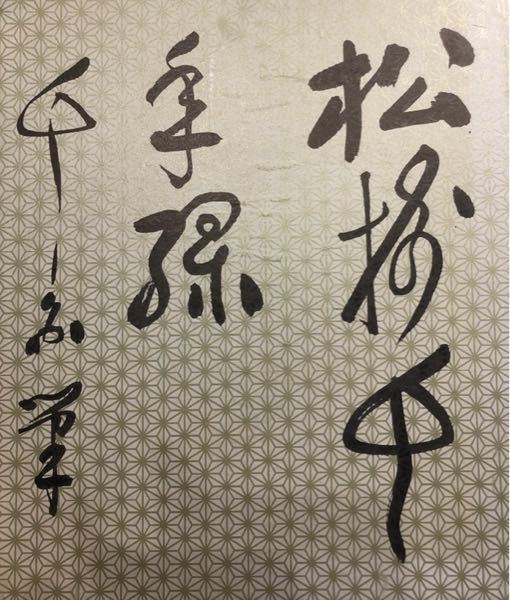 松樹千
年緑
千筆